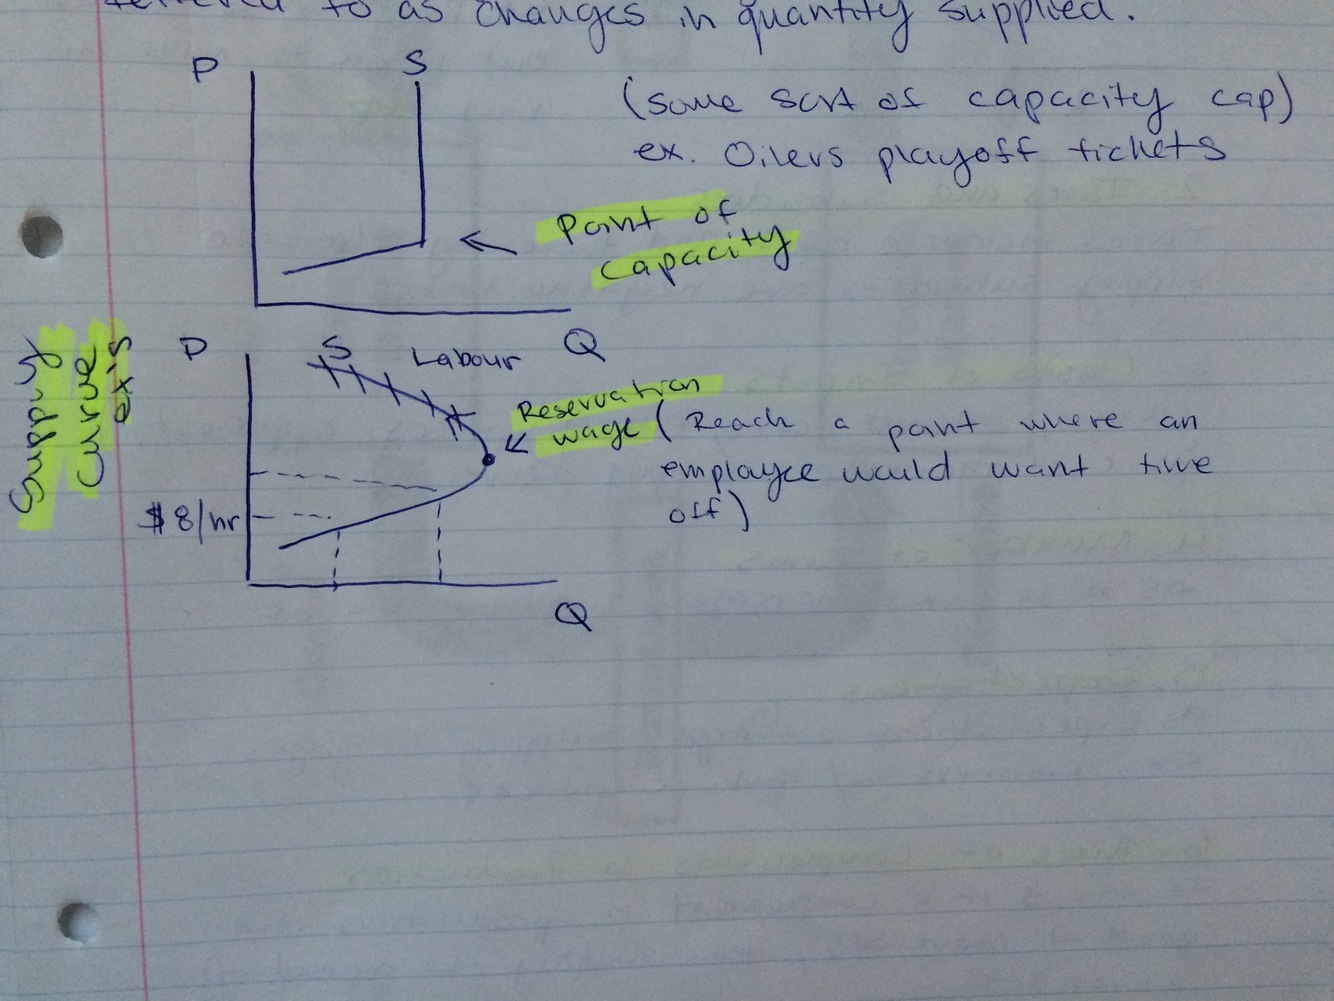 referred to as changes in quantity supplied.
P
S
(some sort of capacity cap)
ex. Oilers playoff tickets
Point of
Capacity
Q
Supply
Curve
ex's
P
S
Labour
Reservation
wage (Reach a point where an
employee would want time
off)
$8/hr
Q